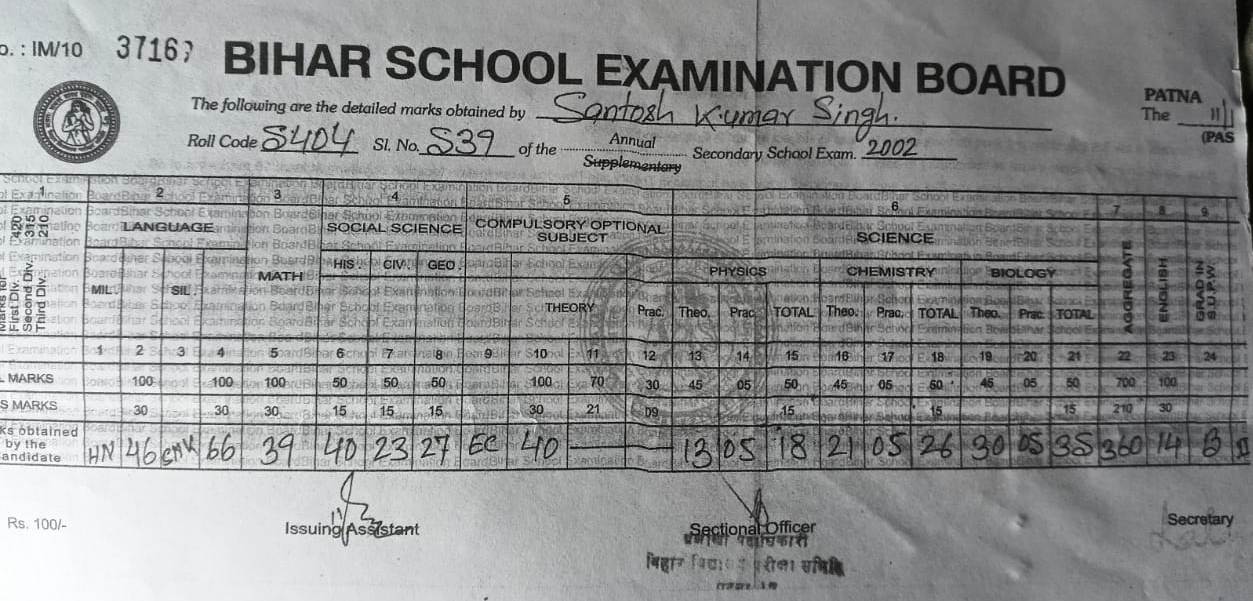 o. : IM/10 3716? BIHAR SCHOOL EXAMINATION BOARD
PATNA
The following are the detailed marks obtained by Santosh Kumar Singh.
The 11
(PAS
Roll Code S404 Sl. No. S39 of the Annual Supplementary Secondary School Exam. 2002
1 2 3 4 5 6 7 8 9
First Div. 420
Second Div. 315
Third Div. 210
LANGUAGE SOCIAL SCIENCE COMPULSORY OPTIONAL SUBJECT SCIENCE
MATH HIS. CIV. GEO. PHYSICS CHEMISTRY BIOLOGY AGGREGATE ENGLISH GRAD IN S.U.P.W.
MIL SIL THEORY Prac. Theo. Prac. TOTAL Theo. Prac. TOTAL Theo. Prac. TOTAL
1 2 3 4 5 6 7 8 9 10 11 12 13 14 15 16 17 18 19 20 21 22 23 24
MARKS 100 100 100 50 50 50 100 70 30 45 05 50 45 05 50 45 05 50 700 100
S MARKS 30 30 30 15 15 15 30 21 09 15 15 15 210 30
ks obtained by the andidate HN 46 SNK 66 39 40 23 27 EC 40 13 05 18 21 05 26 30 05 35 360 14 B
Rs. 100/-
Issuing Assistant
Sectional Officer
Secretary
प्रशाखा पदाधिकारी
बिहार विद्यालय परीक्षा समिति